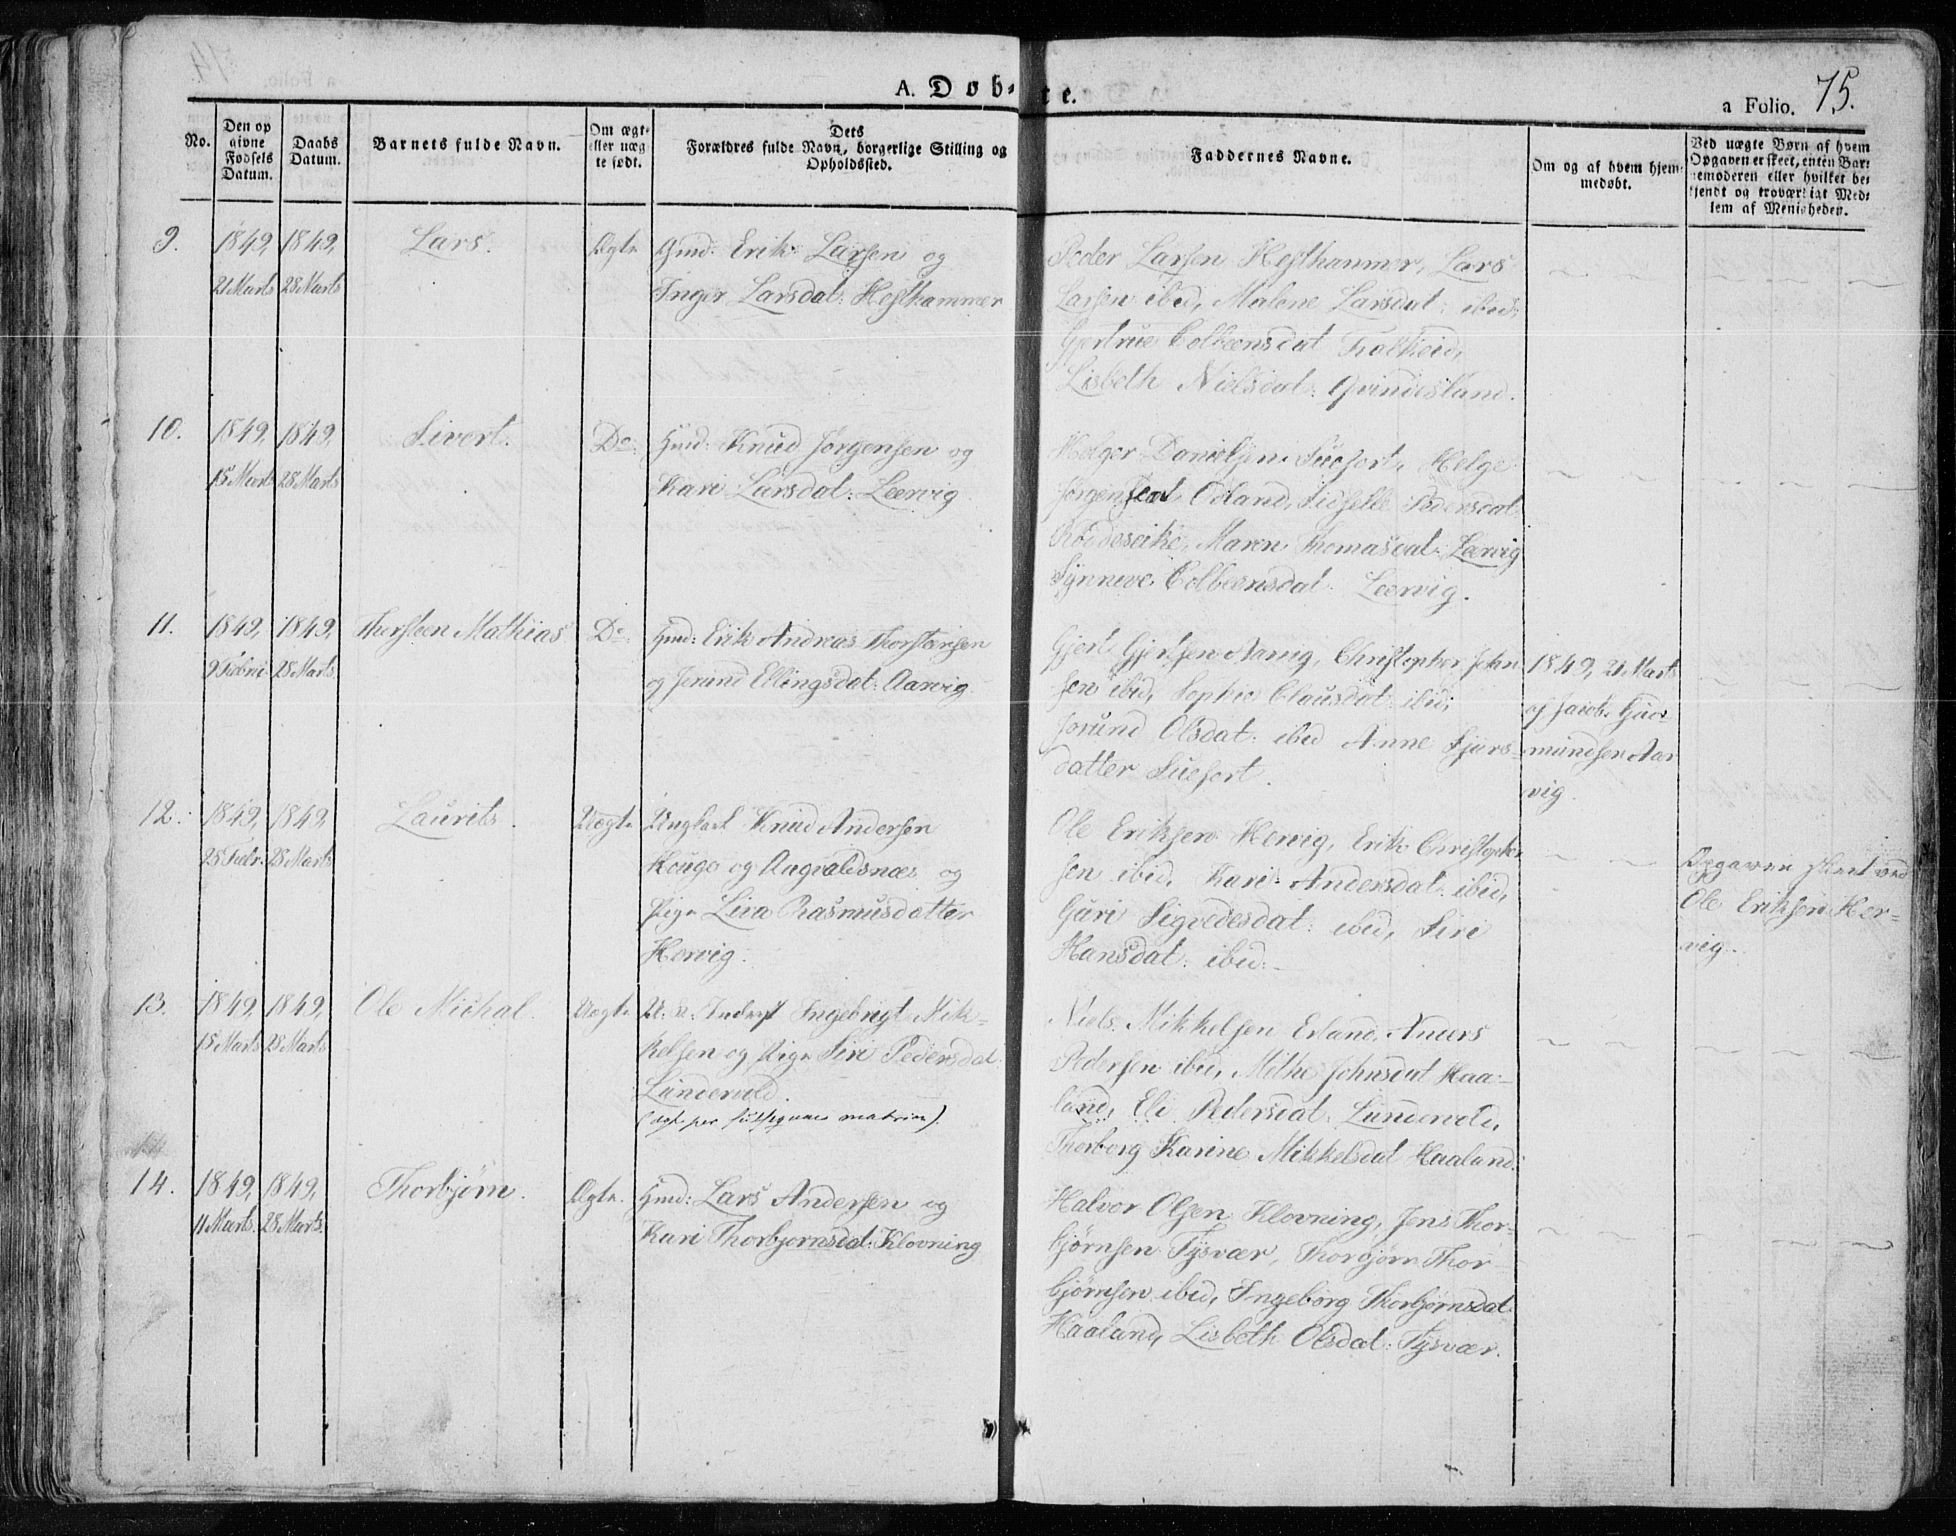 A. Døbte.
a Folio. 75.
No.
Den op
givne
Fødsels
Datum.
Daabs
Datum.
Barnets fulde Navn.
Om ægt-
eller uæg
te født.
Dets
Forældres fulde Navn, borgerlige Stilling og
Opholdssted.
Faddernes Navne.
Om og af hvem hjem-
medøbt.
Ved uægte Børn af hvem
Opgaven er skeet, enten Bar-
nemoderen eller hvilket be-
kjendt og troværdigt Med-
lem af Menigheden.
9. 1849, 1849, Lars. Ægte
21 Marts 28 Marts
Gmd: Erik Larsen og
Inger Larsdat: Hesthammer
Peder Larsen Hesthammer, Lars
Larsen ibid, Malene Larsdat: ibid,
Gjertrue Colbeensdat
Lisbeth Nielsdat: Qvindesland.
10. 1849, 1849, Sivert. Do:
15 Marts 28 Marts
Gmd: Knud Jørgensen og
Kari Larsdat: Leervig
Holger Danielsen Suefort, Helge
Jørgensen Odland, Sidselle Pedersdat
Maren Thomasdat: Leervig
Synneve Colbeensdat: Leervig.
11. 1849, 1849, Thorsteen Mathias Do:
9 Febru: 28 Marts
Gmd: Erik Andreas Thorstensen
og Jorund Ellingsdat: Aarvig
Gjert Gjertsen Aarvig, Christopher John
sen ibid, Sophie Clausdat: ibid,
Jorund Olsdat: ibid Anne Sjurs-
datter Suefort.
1849, 21 Marts
af Jacob Gud-
mundsen Aar
vig.
12. 1849, 1849, Laurits. Uægte
25 Febr. 28 Marts
Ungkarl Knud Andersen
Houge og Augvaldsnæs og
Pige Lina Rasmusdatter
Hervig.
Ole Eriksen Hervig, Erik Christopher
sen ibid, Kari Andersdat: ibid,
Guri Sigvedesdat: ibid, Siri
Hansdat: ibid.
Opgaven skeet ved
Ole Eriksen Her-
vig.
13. 1849, 1849, Ole Michal. Uægte
15 Marts 28 Marts
Ingebrigt Mik-
kelsen og Pige Siri Pedersdat
Lundevold.
Niels Mikkelsen Erland, Anders
Pedersen ibid, Methe Johnsdat Haa-
land, Eli Pedersdat: Lundevold,
Thorborg Karine Mikkelsdat Haaland.
14. 1849, 1849, Thorbjørn. Ægte.
11 Marts. 28 Marts.
Gmd: Lars Andersen og
Kari Thorbjornsdat: Klovning
Halvor Olsen Klovning, Jens Thor-
bjørnsen Tysvær, Thorbjørn Thor
bjørnsen ibid, Ingeborg Thorbjørnsdat:
Haaland, Lisbeth Olsdat: Tysvær.